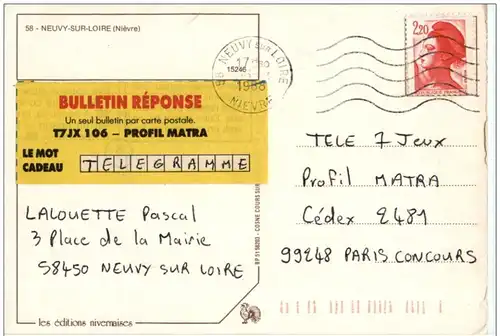 58 - NEUVY-SUR-LOIRE (Nièvre)
58 NEUVY SUR LOIRE
17 H
15246
1986
NIEVRE
2,20
BULLETIN RÉPONSE
Un seul bulletin par carte postale.
T7JX 106 – PROFIL MATRA
LE MOT
CADEAU
TELEGRAMME
LALOUETTE Pascal
3 Place de la Mairie
58450 NEUVY SUR LOIRE
les éditions nivernaises
TELE 7 Jeux
Profil MATRA
Cédex 2481
99248 PARIS CONCOURS